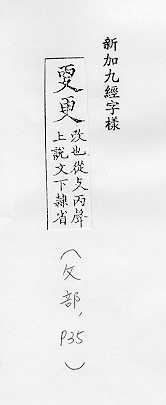 新加九經字樣
㪅更
改也從攴丙聲
上說文下隸省
(攵部, P35)